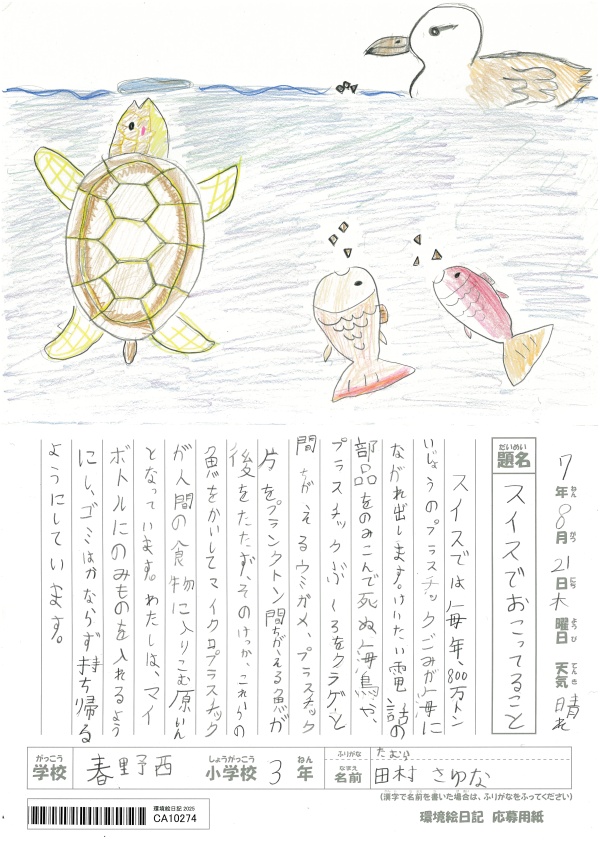 7年8月21日木曜日 天気 晴れ
ねん がつ にち ようび てんき
だいめい
題名
スイスでおこってること
スイスでは毎年、800万トン
いじょうのプラスチックごみが海に
ながれ出します。けいたい電話の
部品をのみこんで死ぬ海鳥や、
プラスチックぶくろをクラゲと
間ちがえるウミガメ、プラスチック
片をプランクトン間ちがえる魚が
後をたたず、そのけっか、これらの
魚をかいしてマイクロプラスチック
が人間の食物に入りこむ原いん
となっています。わたしは、マイ
ボトルにのみものを入れるよう
にし、ゴミはかならず持ち帰る
ようにしています。
がっこう
学校
春野西
しょうがっこう
小学校
3
ねん
年
ふりがな
たむら
なまえ
名前
田村 さゆな
(漢字で名前を書いた場合は、ふりがなをふってください)
環境絵日記 2025
CA10274
環境絵日記 応募用紙